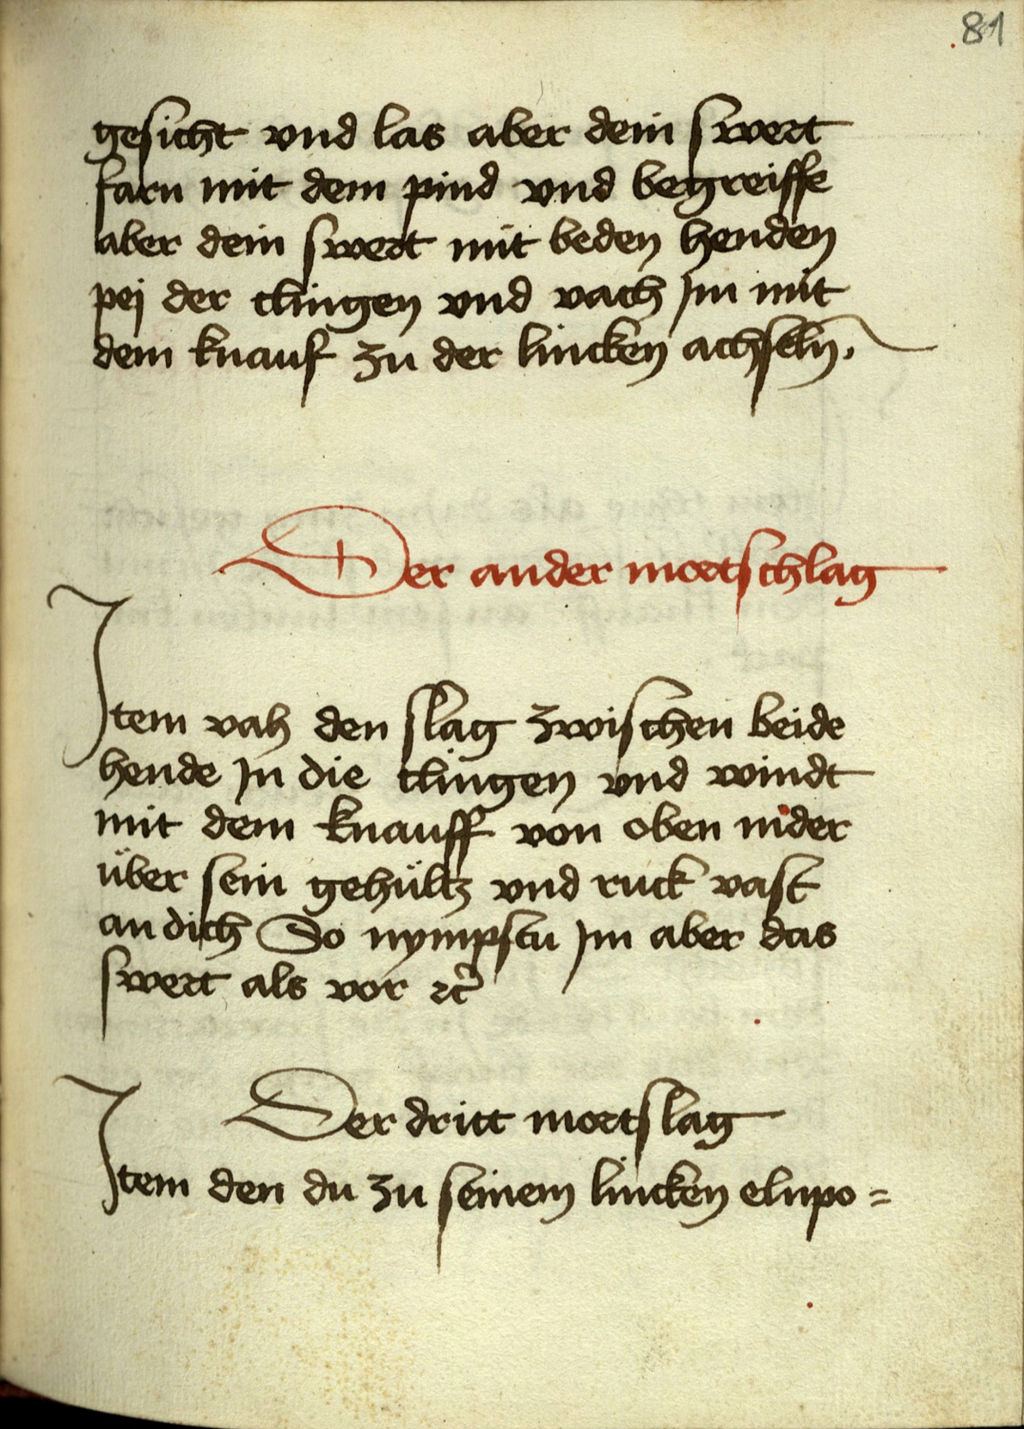 81
gesicht vnd las aber dein swert
farn mit dem pind vnd begreiffe
aber dein swert mit beden henden
pej der clingen vnd vach Jm mit
dem knauf zu der lincken achseln.
Der ander mortschlag
Jtem vah den slag zwischen beide
hende Jn die clingen vnd windt
mit dem knauff von oben nider
über sein gehültz vnd ruck vast
an dich So nympstu Jm aber das
swert als vor ꝛc̃
Der dritt mortslag
Jtem den du zu seinem lincken elnpo=